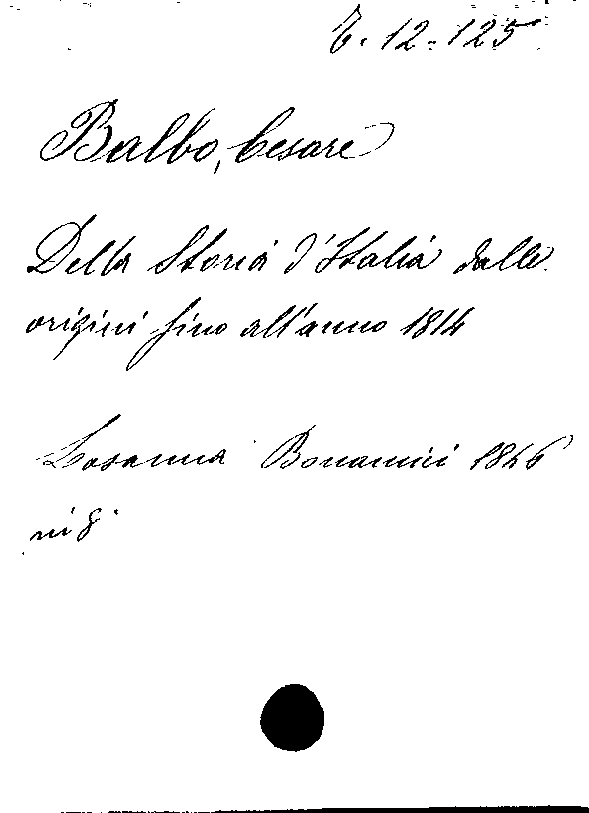 12-125
Balbo, Cesare
Della Storia d'Italia dalle
origini fino all'anno 1814
Losanna Bonamici 1846
in 8°